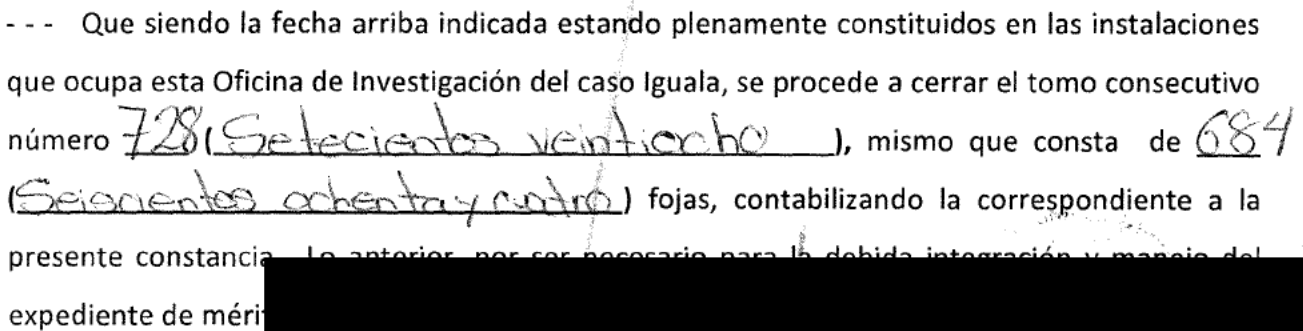 - - - Que siendo la fecha arriba indicada estando plenamente constituidos en las instalaciones
que ocupa esta Oficina de Investigación del caso Iguala, se procede a cerrar el tomo consecutivo
número 728 (Setecientos veintiocho), mismo que consta de 684
(Seiscientos ochenta y cuatro) fojas, contabilizando la correspondiente a la
presente constancia. Lo anterior, por ser necesario para la debida integración y manejo del
expediente de méri